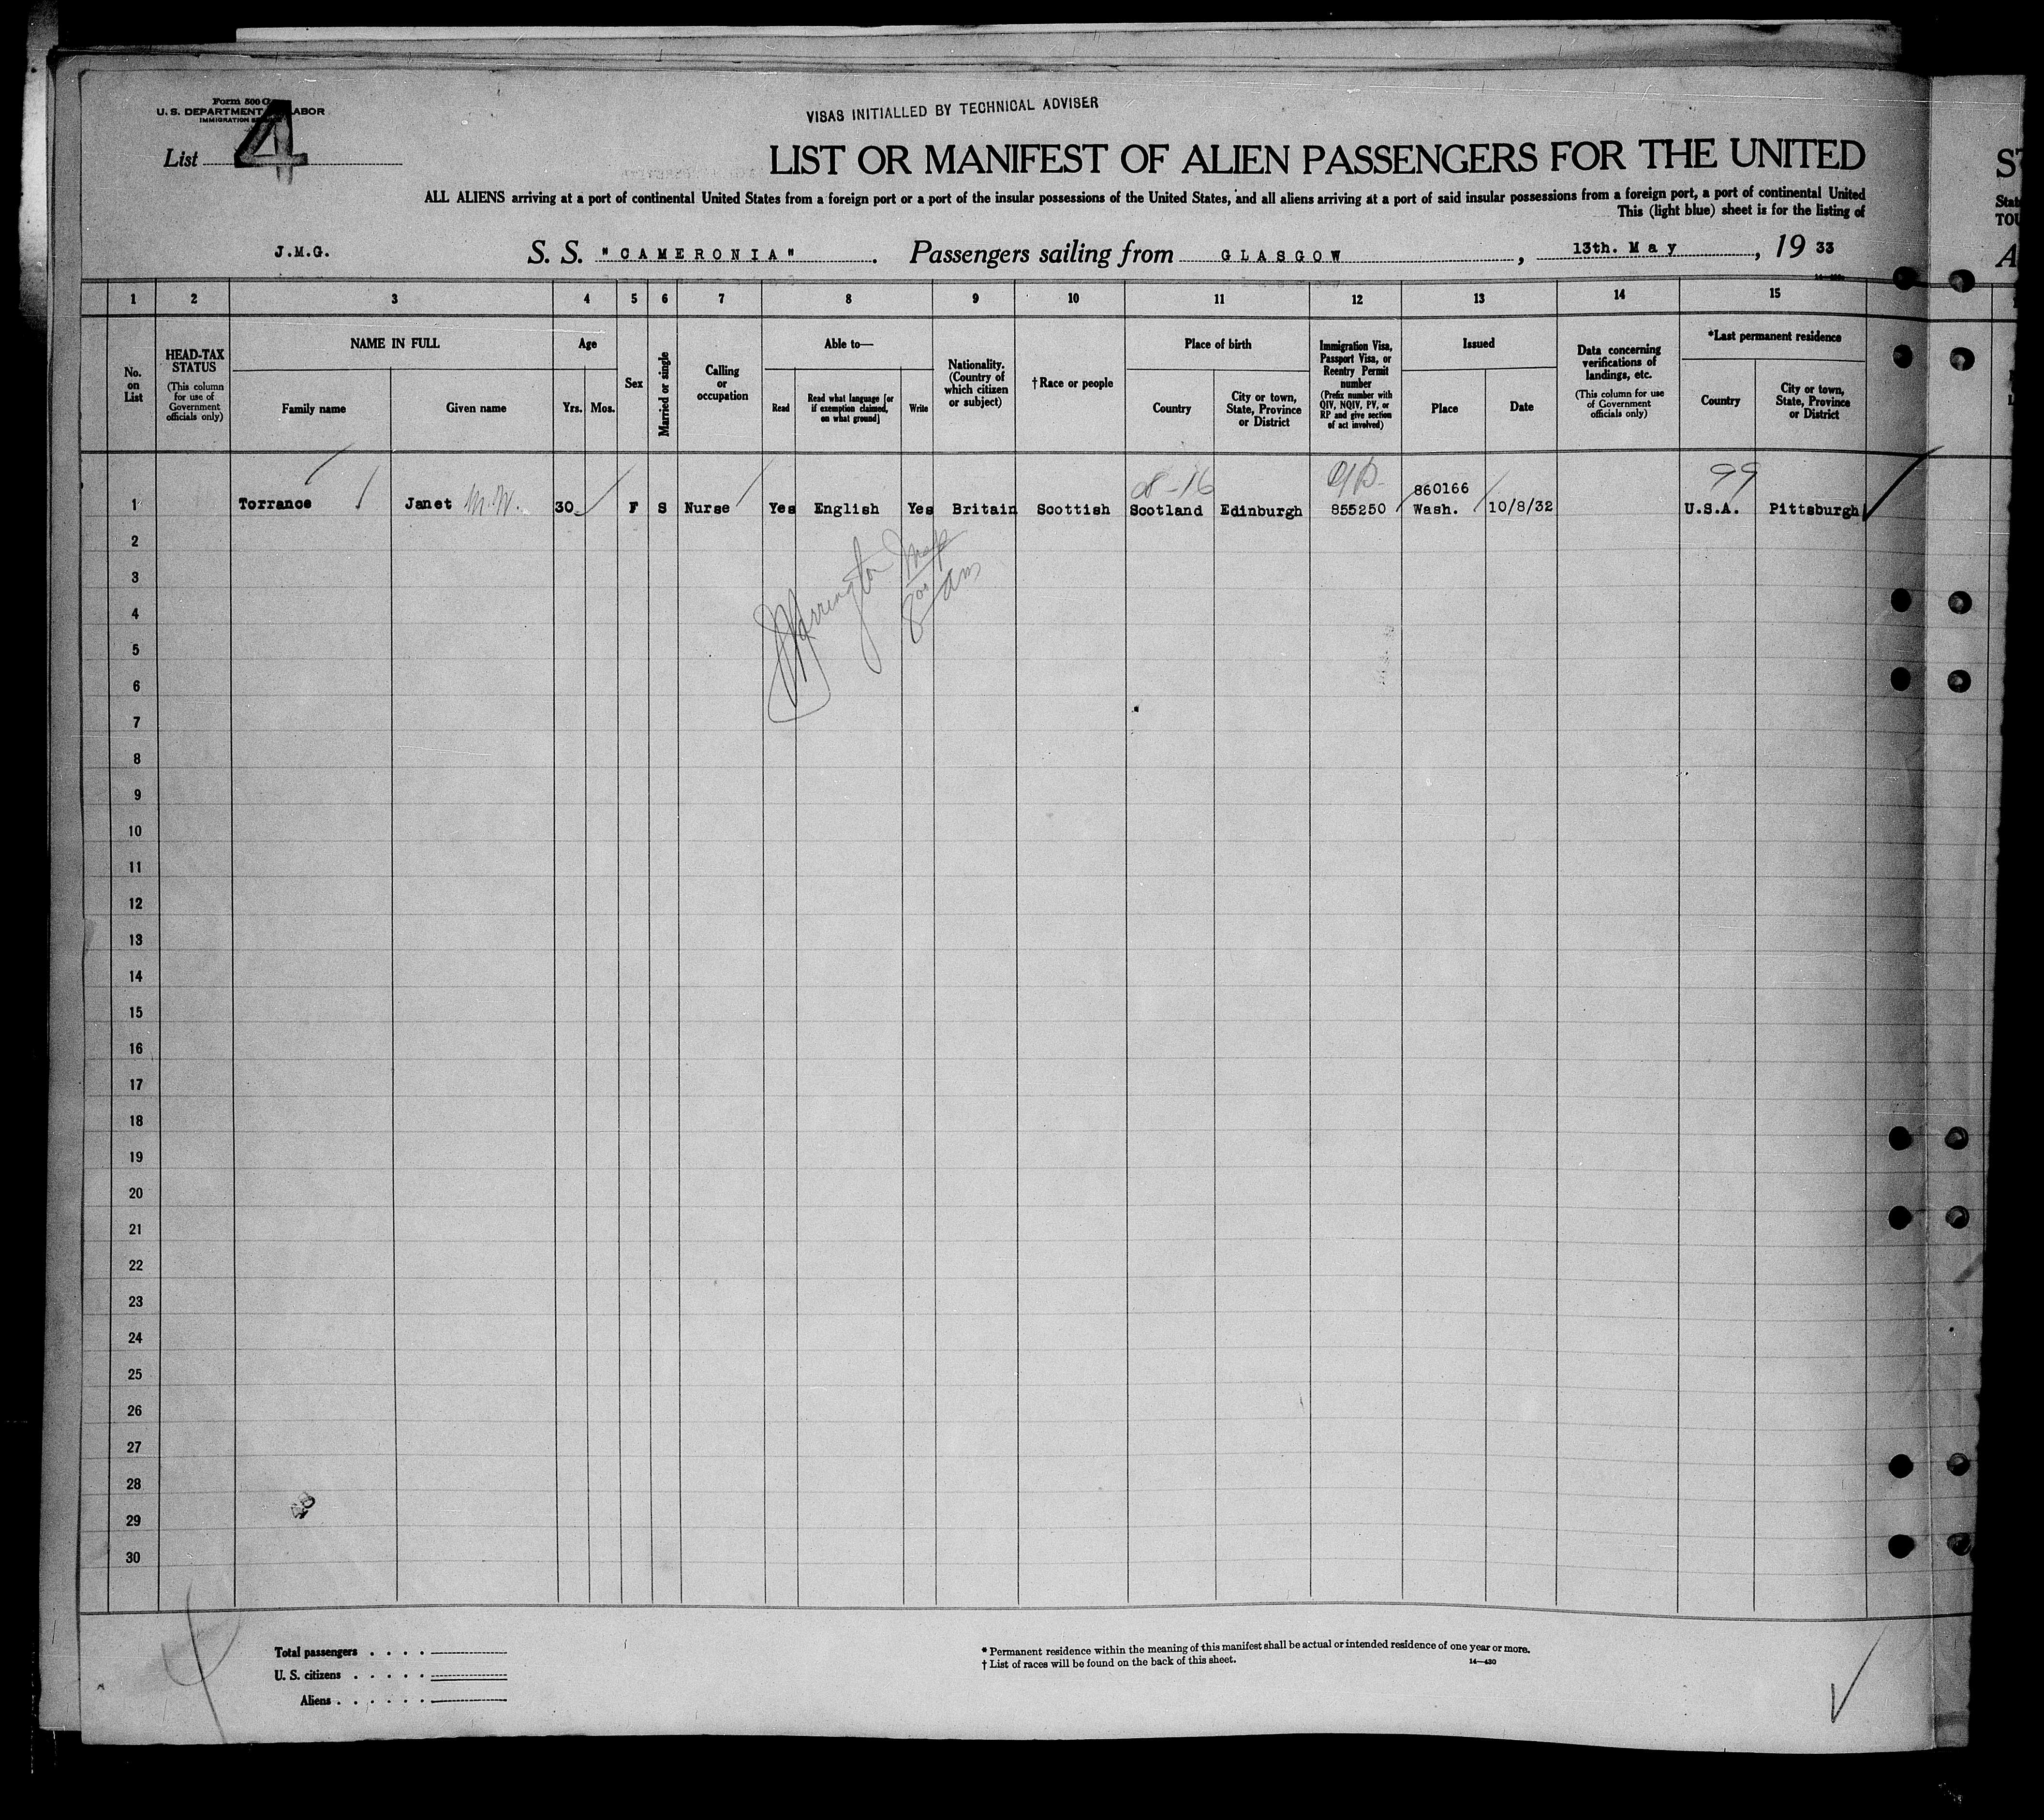 Form 500 C
U. S. DEPARTMENT LABOR
IMMIGRATION
List 4
VISAS INITIALLED BY TECHNICAL ADVISER
LIST OR MANIFEST OF ALIEN PASSENGERS FOR THE UNITED
ALL ALIENS arriving at a port of continental United States from a foreign port or a port of the insular possessions of the United States, and all aliens arriving at a port of said insular possessions from a foreign port, a port of continental United
This (light blue) sheet is for the listing of
J.M.G. S. S. "CAMERONIA". Passengers sailing from GLASGOW, 13th. May, 19 33
1 2 3 4 5 6 7 8 9 10 11 12 13 14 15
No. on List
HEAD-TAX STATUS
(This column for use of Government officials only)
NAME IN FULL
Family name
Given name
Age
Yrs. Mos.
Sex
Married or single
Calling or occupation
Able to—
Read
Read what language [or if exemption claimed, on what ground]
Write
Nationality. (Country of which citizen or subject)
†Race or people
Place of birth
Country
City or town, State, Province or District
Immigration Visa, Passport Visa, or Reentry Permit number
(Prefix number with QIV, NQIV, PV, or RP and give section of act involved)
Issued
Place
Date
Data concerning verifications of landings, etc.
(This column for use of Government officials only)
*Last permanent residence
Country
City or town, State, Province or District
99
860166
1 Torrance Janet M.W. 30 F S Nurse Yes English Yes Britain Scottish Scotland Edinburgh 855250 Wash. 10/8/32 U.S.A. Pittsburgh
2
3
4
5
6
7
8
9
10
11
12
13
14
15
16
17
18
19
20
21
22
23
24
25
26
27
28
29
30
Total passengers . . . .
U. S. citizens . . . . .
Aliens . . . . . .
* Permanent residence within the meaning of this manifest shall be actual or intended residence of one year or more.
† List of races will be found on the back of this sheet.
14—430